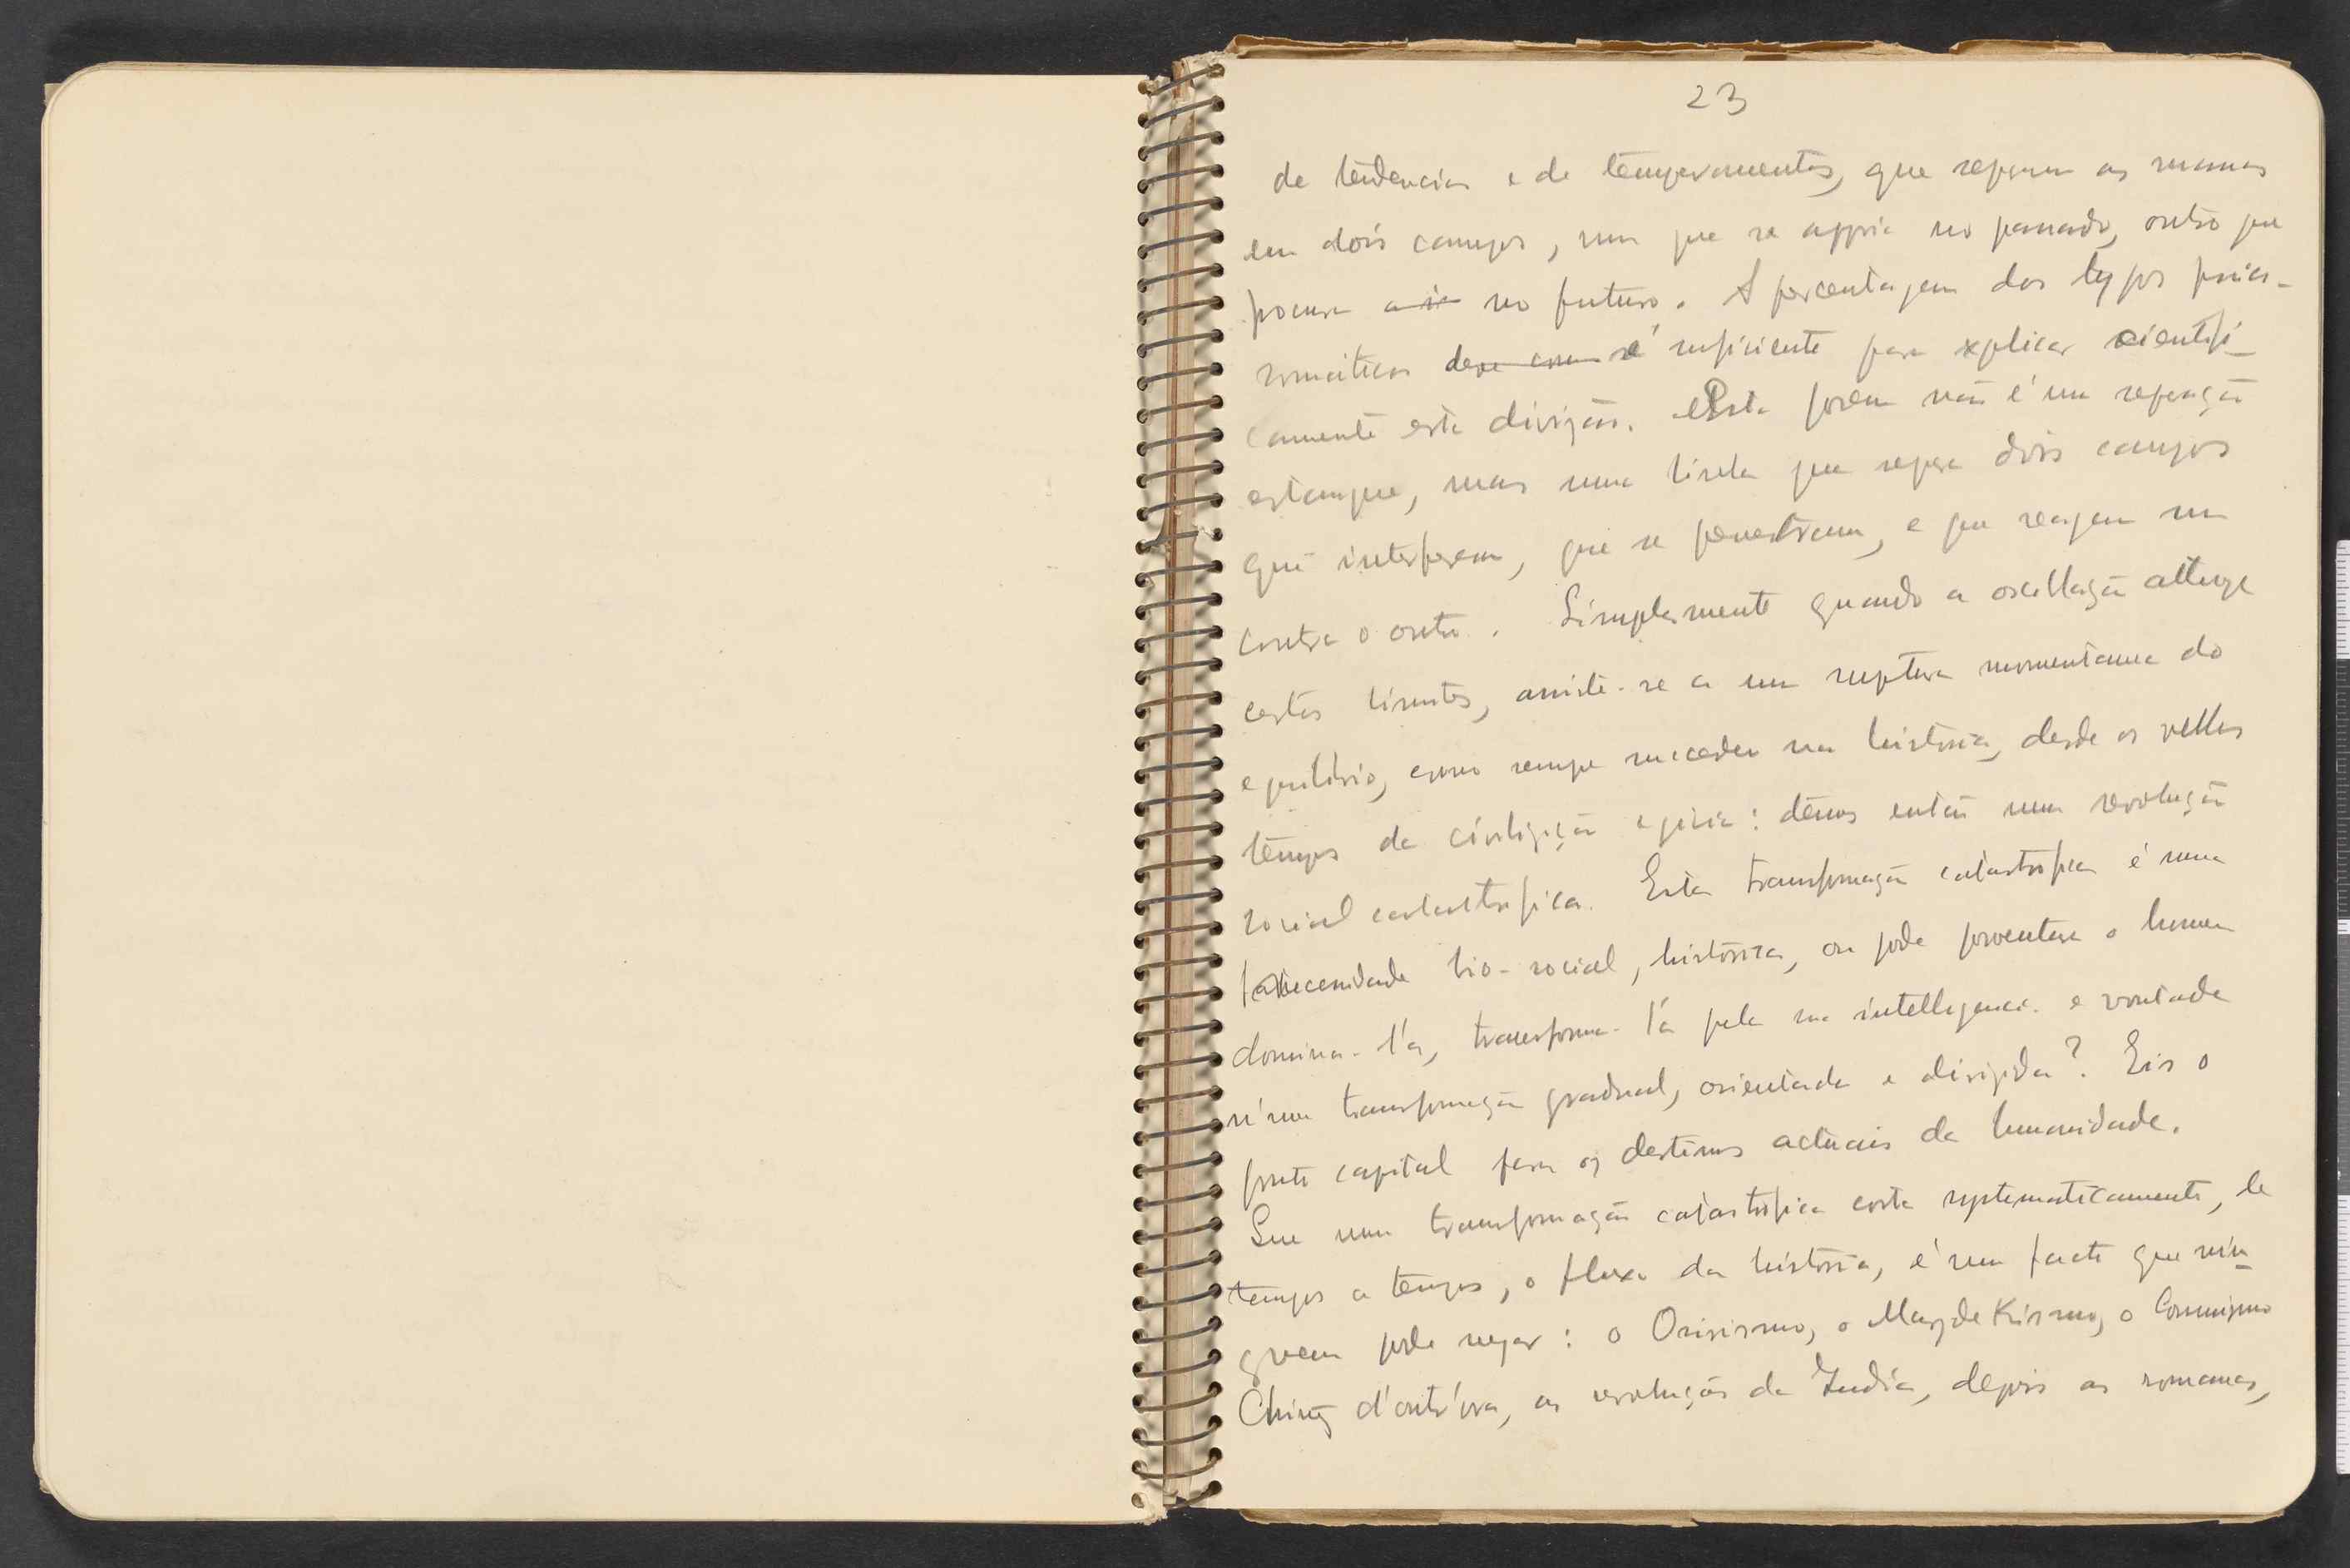 23
de tendencias e de temperamentos, que separam as massas
em dois campos, um que se appoia no passado, outro que
procura no futuro. A percentagem dos typos psico-
somaticos é sufficiente para explicar scientifi-
camente esta divisão. Esta porem não é um separação
estanque, mas uma linha que separa dois campos
que interferem, que se penetram, e que reagem um
contra o outro. Simplesmente quando a oscillação attinge
certos limites, assiste-se a um ruptura momentanea do
equilibrio, como sempre succedeu na historia, desde os velhos
tempos da civilização egipcia: temos então uma revolução
social catastrofica. Esta transformação catastrofica é uma
necessidade bio-social, historica, ou pode porventura o homem
domina-l'a, transforma-l'a pela sua intelligencia e vontade
n'uma transformação gradual, orientada e dirigida? Eis o
ponto capital para os destinos actuais da humanidade.
Que uma transformação catastrofica corta systematicamente, de
tempos a tempos, o fluxo da historia, é um facto que nin-
guem pode negar: o Osirismo, o Mazdekismo, o Comunismo
Chinez d'outr'ora, as revoluções da India, depois as romanas,